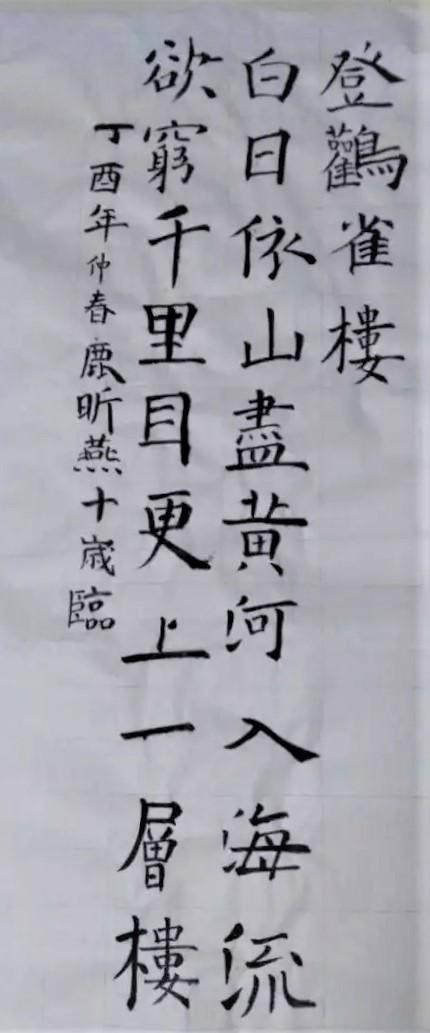 登鸛雀樓
白日依山盡黄河入海流
欲窮千里目更上一層樓
丁酉年仲春鹿昕燕十歲臨